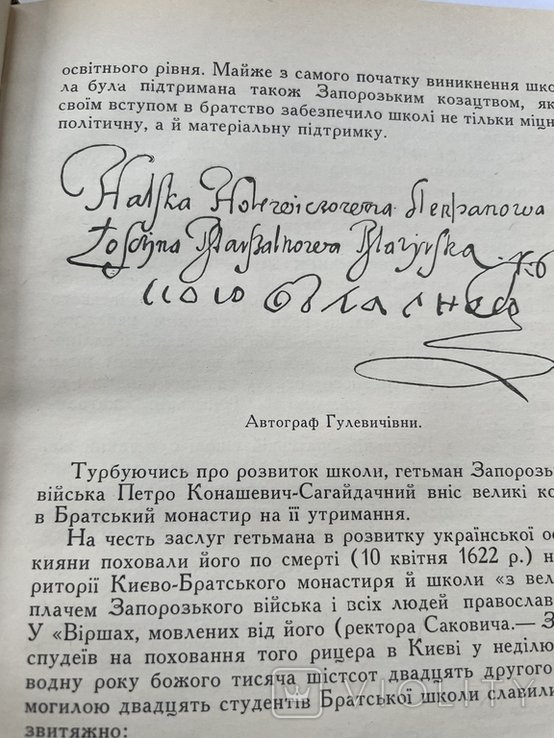 освітнього рівня. Майже з самого початку виникнення шко
ла була підтримана також Запорозьким козацтвом, як
своїм вступом в братство забезпечило школі не тільки міцн
політичну, а й матеріальну підтримку.
Halska
Автограф Гулевичівни.
Турбуючись про розвиток школи, гетьман Запорозь
війська Петро Конашевич-Сагайдачний вніс великі ко
в Братський монастир на її утримання.
На честь заслуг гетьмана в розвитку української ос
кияни поховали його по смерті (10 квітня 1622 р.) н
риторії Києво-Братського монастиря й школи «з вел
плачем Запорозького війська і всіх людей православ
У «Віршах, мовлених від його (ректора Саковича.— З
спудеїв на поховання того рицера в Києві у неділю
водну року божого тисяча шістсот двадцять другого
могилою двадцять студентів Братської школи славили
звитяжно:
VIOLITY